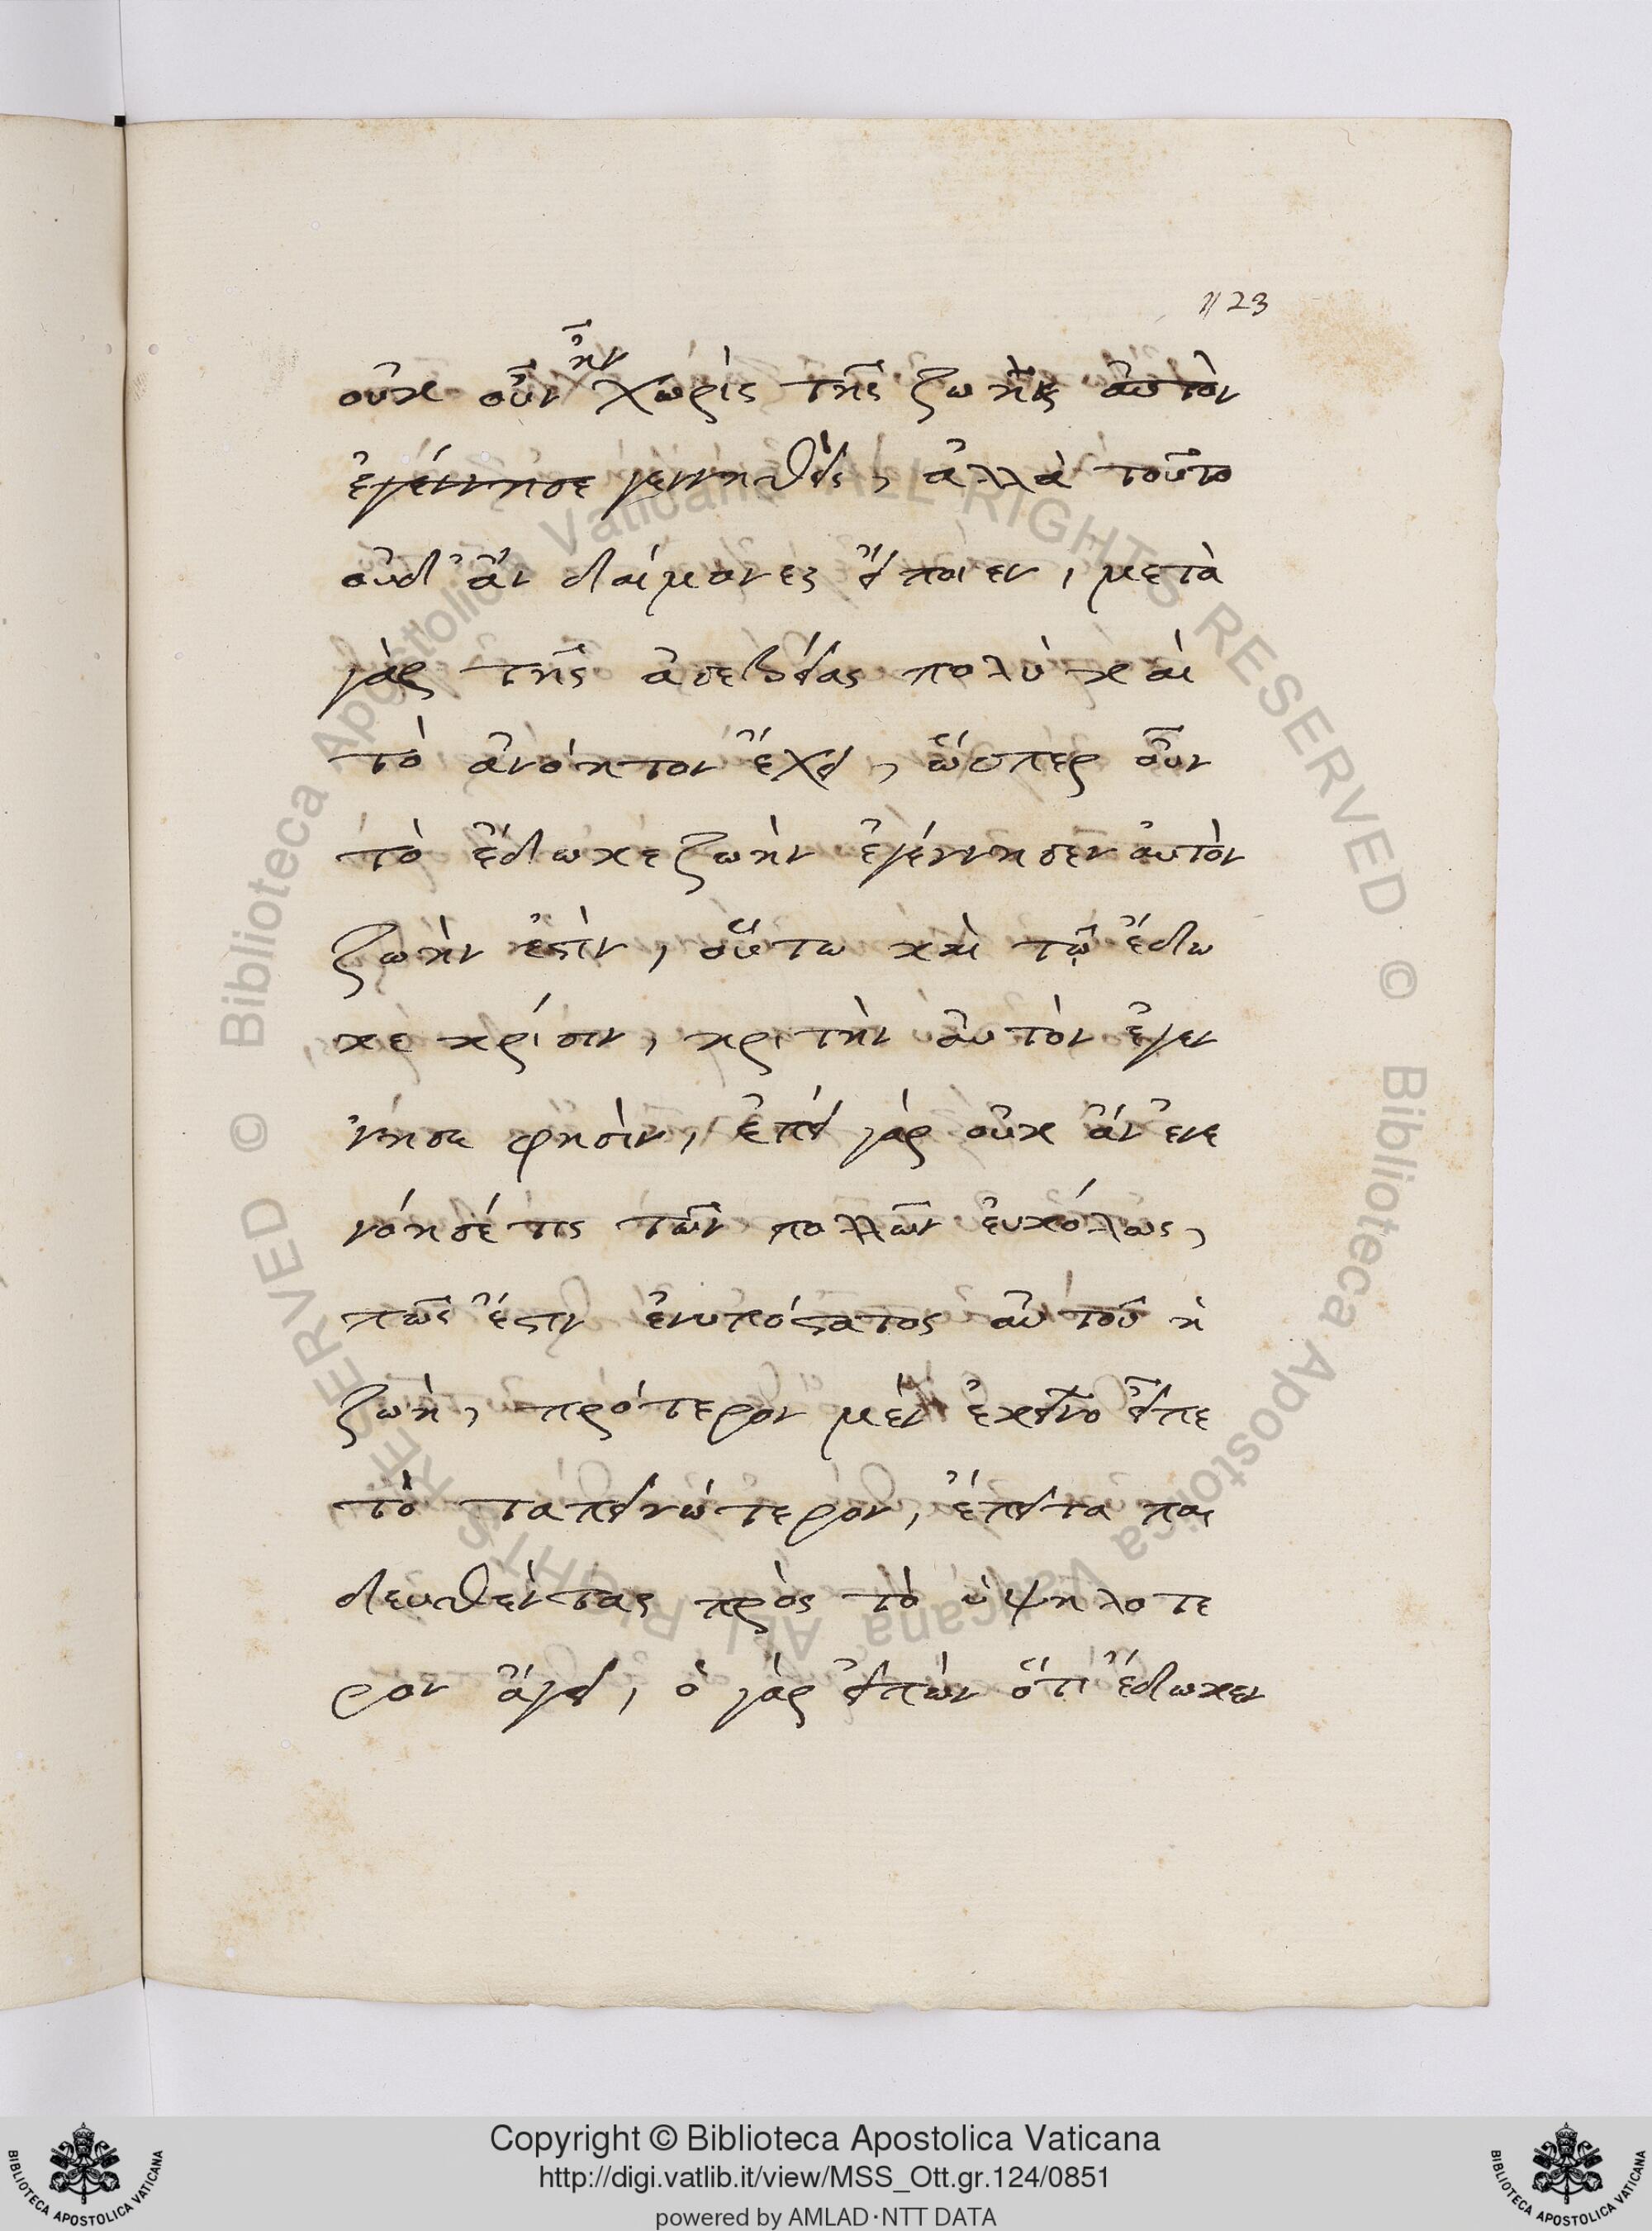 1123
ἦν
οὐκ οὖν χωρὶς τῆς ζωῆς αὐτὸν
ἐγέννησε γεννηθεὶς, ἀλλὰ τοῦτο
οὐδ' ἂν δαίμονες εἴποιεν, μετὰ
γὰρ τῆς ἀσεβείας πολὺ καὶ
τὸ ἀνόητον ἔχει, ὥσπερ οὖν
τὸ ἔδωκε ζωὴν ἐγέννησεν αὐτὸν
ζωὴν ἐστὶν, οὕτω καὶ τῷ ἔδω
κε κρίσιν, κριτὴν αὐτὸν ἐγεν
νησε φησὶν, ἐπεὶ γὰρ οὐκ ἂν ἐνε
νόησέ τις τῶν πολλῶν εὐκόλως,
πῶς ἔστιν ἐνυπόστατος αὐτοῦ ἡ
ζωὴ, πρότερον μὲν ἐκεῖνο εἶπε
τὸ ταπεινώτερον, ἔπειτα παι
δευθέντας πρὸς τὸ ὑψηλοτε
ρον ἄγει, ὁ γὰρ εἰπὼν ὅτι ἔδωκεν
© Biblioteca Apostolica Vaticana ALL RIGHTS RESERVED © Biblioteca Apostolica Vaticana ALL RIGHTS RESERVED
BIBLIOTECA APOSTOLICA VATICANA
Copyright © Biblioteca Apostolica Vaticana
http://digi.vatlib.it/view/MSS_Ott.gr.124/0851
powered by AMLAD·NTT DATA
BIBLIOTECA APOSTOLICA VATICANA